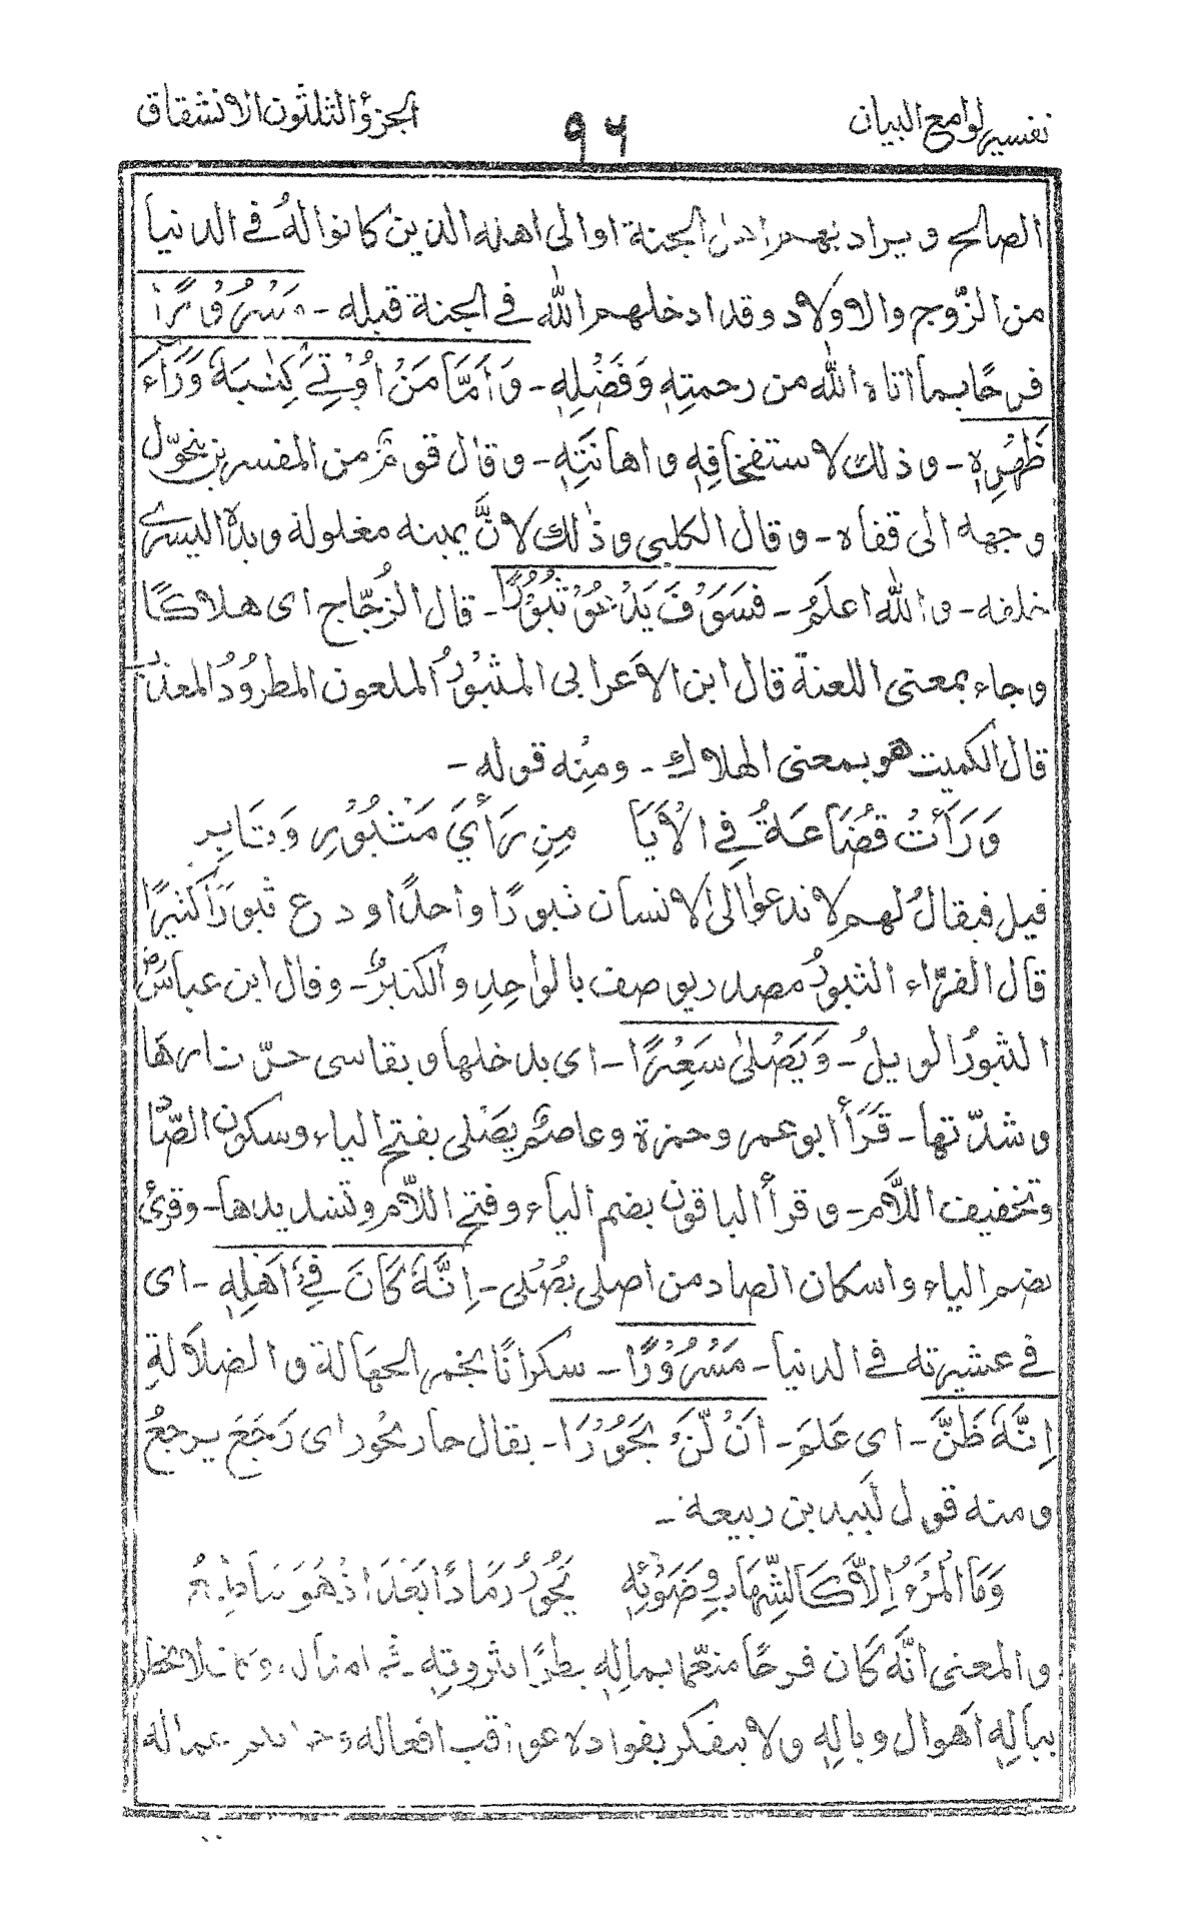 تفسير لوامع البيان
٩٦
الجزؤ الثلثون الانشقاق
الصالح ويراد بهم اهل الجنة او الى اهله الذين كانوا لهُ في الدنيا
من الزّوج والاولاد وقد ادخلهم الله في الجنة قبله - مَسْرُوْرًا
فرحًا بما اتاه الله من رحمتِهٖ وَفَضْلِهٖ - وَاَمَّا مَنْ اُوْتِيَ كِتٰبَهٗ وَرَآءَ
ظَهْرِهٖ - وذلك لاستفخافِهٖ واهانتِهٖ - وقال قومٌ من المفسرين بتحوّل
وجهه الى قفاه - وقال الكلبي وذٰلك لانَّ يمينه مغلولة ويده اليسرى
خلفه - والله اعلَمُ - فَسَوْفَ يَدْعُوْ ثُبُوْرًا - قال الزُّجّاج اى هلاكًا
وجاء بمعنى اللعنة قال ابن الاَعرابى المثبُوْرُ الملعون المطرُودُ المعذب
قال الكميت هو بمعنى الهلاك - ومِنْه قوله -
وَرَأَتْ قُضَاعَةُ فِي الْاَيَا مِنِ رَأْيَ مَثْبُوْرٍ وَثَابِرِ
قيل فيقالُ لهم لا تدعوا الى الانسان ثبورًا واحدًا و درع ثبورًا كثيرًا
قال الفرّاء الثبورُ مصدر يوصف بالواحِدِ والكثيرُ - وقال ابن عباسٌ
الثبورُ الويلُ - وَيَصْلٰى سَعِيْرًا - اى يدخلها ويقاسى حرّ نارها
وشدّتها - قَرَأَ ابو عمر وحمزة وعاصمٌ يصْلٰى بفتح الياء وسكون الصّادْ
وتخفيف اللاَّم - وقرأ الباقون بضم الياء وفتح اللاّم وتشديدها - وقرئ
بضم الياء واسكان الصاد من اصلى يُصْلٰى - اِنَّهٗ كَانَ فِيْٓ اَهْلِهٖ - اى
في عشيرته في الدنيا - مَسْرُوْرًا - سكرانًا بخمر الجهالة والضلالةِ
اِنَّهٗ ظَنَّ - اى عَلِمَ - اَنْ لَّنْ يَّحُوْرَا - يقال حار يحُور اى رَجَعَ يرجعُ
ومنه قول لَبيد بن ربيعة -
وَمَا الْمَرْءُ اِلاَّ كَالشِّهَابِ وَضَوْئِهٖ يَحُوْرُ رَمَادًا بَعْدَ اِذْ هُوَ سَاطِعُ
والمعنى انَّهٗ كان فرحًا منعّمًا بمالِهٖ بطرًا بثروتِهٖ
ببالِهٖ اَهوال وبالِهٖ ولا يتفكر بفواده عواقب افعاله اعماله